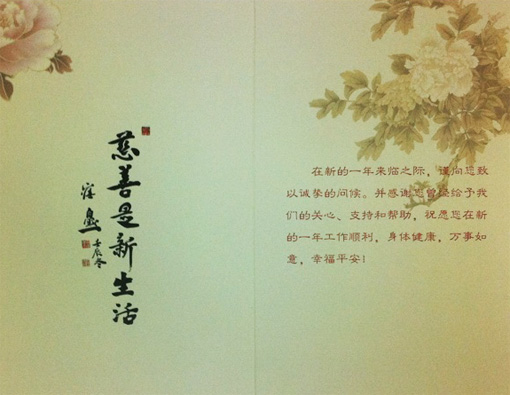 慈善是新生活
壬辰冬
在新的一年来临之际，谨向您致
以诚挚的问候。并感谢您曾经给予我
们的关心、支持和帮助，祝愿您在新
的一年工作顺利，身体健康，万事如
意，幸福平安！